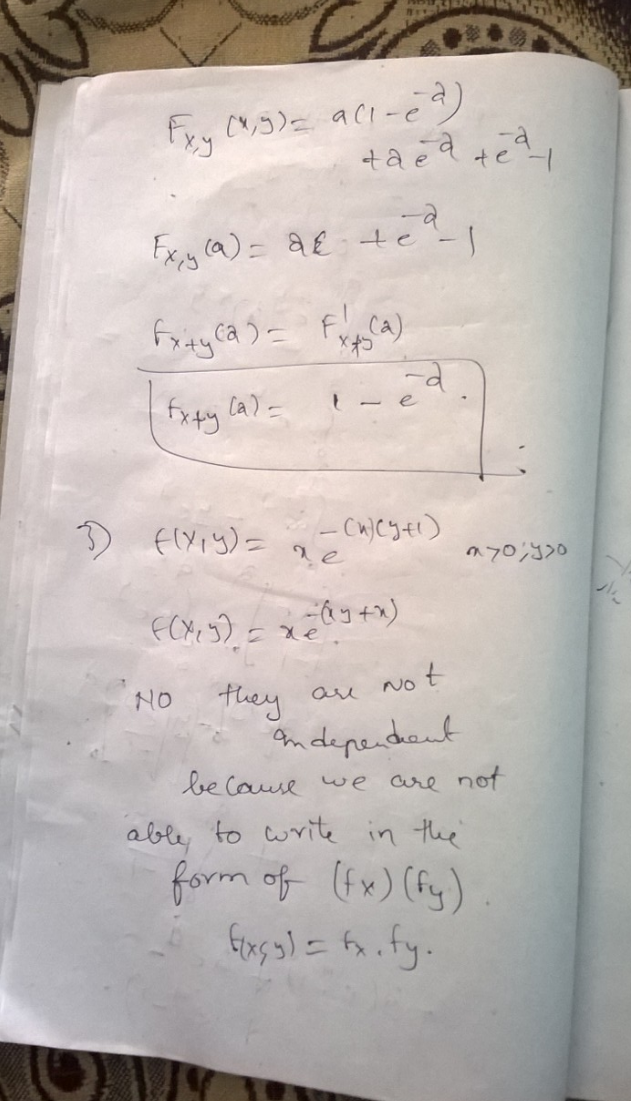 F_{x,y}(x,y) = a(1-e^{-a})
+ae^{-a} +e^{-a}-1
F_{x,y}(a) = a +e^{-a}-1
f_{x+y}(a) = F'_{x+y}(a)
f_{x+y}(a) = 1-e^{-a}.
3) f(x,y) = xe^{-(x)(y+1)} x>0;y>0
f(x,y) = xe^{-(xy+x)}
NO they are not
independent
because we are not
able to write in the
form of (fx)(fy).
f(x,y) = fx.fy.